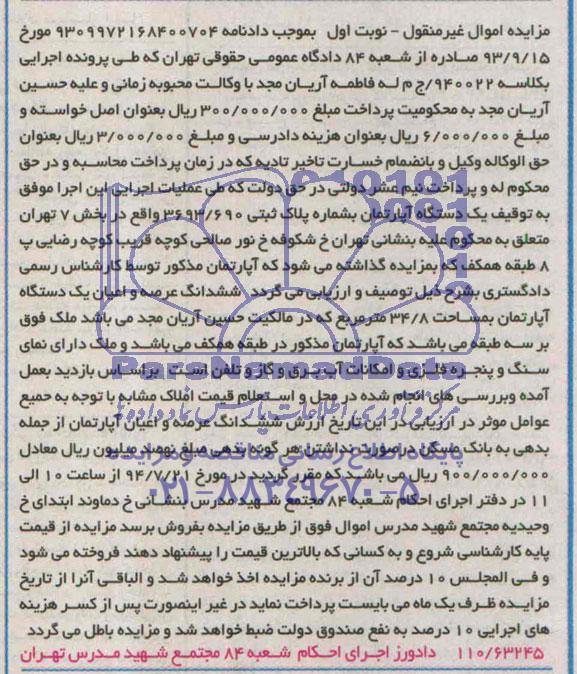 مزایده اموال غیرمنقول - نوبت اول بموجب دادنامه ۹۳۰۹۹۷۲۱۶۸۴۰۰۷۰۴ مورخ
۹۳/۹/۱۵ صادره از شعبه ۸۴ دادگاه عمومی حقوقی تهران که طی پرونده اجرایی
بکلاسه ۹۴۰۰۲۲/ج م له فاطمه آریان مجد با وکالت محبوبه زمانی و علیه حسین
آریان مجد به محکومیت پرداخت مبلغ ۳۰۰/۰۰۰/۰۰۰ ریال بعنوان اصل خواسته و
مبلغ ۶/۰۰۰/۰۰۰ ریال بعنوان هزینه دادرسی و مبلغ ۳/۰۰۰/۰۰۰ ریال بعنوان
حق الوکاله وکیل و بانضمام خسارت تاخیر تادیه که در زمان پرداخت محاسبه و در حق
محکوم له و پرداخت نیم عشر دولتی در حق دولت که طی عملیات اجرایی این اجرا موفق
به توقیف یک دستگاه آپارتمان بشماره پلاک ثبتی ۳۶۹۳/۶۹۰ واقع در بخش ۷ تهران
متعلق به محکوم علیه بنشانی تهران خ شکوفه خ نور صالحی کوچه قریب کوچه رضایی پ
۸ طبقه همکف که بمزایده گذاشته می شود که آپارتمان مذکور توسط کارشناس رسمی
دادگستری بشرح ذیل توصیف و ارزیابی می گردد. ششدانگ عرصه و اعیان یک دستگاه
آپارتمان بمساحت ۳۴/۸ مترمربع که در مالکیت حسین آریان مجد می باشد ملک فوق
بر سه طبقه می باشد که آپارتمان مذکور در طبقه همکف می باشد و ملک دارای نمای
سنگ و پنجره فلزی و امکانات آب برق و گاز و تلفن است. براساس بازدید بعمل
آمده وبررسی های انجام شده در محل و استعلام قیمت املاک مشابه با توجه به جمیع
عوامل موثر در ارزیابی در این تاریخ ارزش ششدانگ عرصه و اعیان آپارتمان از جمله
بدهی به بانک مسکن درصورت نداشتن هر گونه بدهی مبلغ نهصد میلیون ریال معادل
۹۰۰/۰۰۰/۰۰۰ ریال می باشد که مقرر گردید در مورخ ۹۴/۷/۲۱ از ساعت ۱۰ الی
۱۱ در دفتر اجرای احکام شعبه ۸۴ مجتمع شهید مدرس بنشانی خ دماوند ابتدای خ
وحیدیه مجتمع شهید مدرس اموال فوق از طریق مزایده بفروش برسد مزایده از قیمت
پایه کارشناسی شروع و به کسانی که بالاترین قیمت را پیشنهاد دهند فروخته می شود
و فی المجلس ۱۰ درصد آن از برنده مزایده اخذ خواهد شد و الباقی آنرا از تاریخ
مزایده ظرف یک ماه می بایست پرداخت نماید در غیر اینصورت پس از کسر هزینه
های اجرایی ۱۰ درصد به نفع صندوق دولت ضبط خواهد شد و مزایده باطل می گردد
۱۱۰/۶۳۲۴۵ دادورز اجرای احکام شعبه ۸۴ مجتمع شهید مدرس تهران
ParsNamadData
مرکز فرآوری اطلاعات پارس نماد داده ها
۰۲۱-۸۸۳۴۹۶۷۰-۵